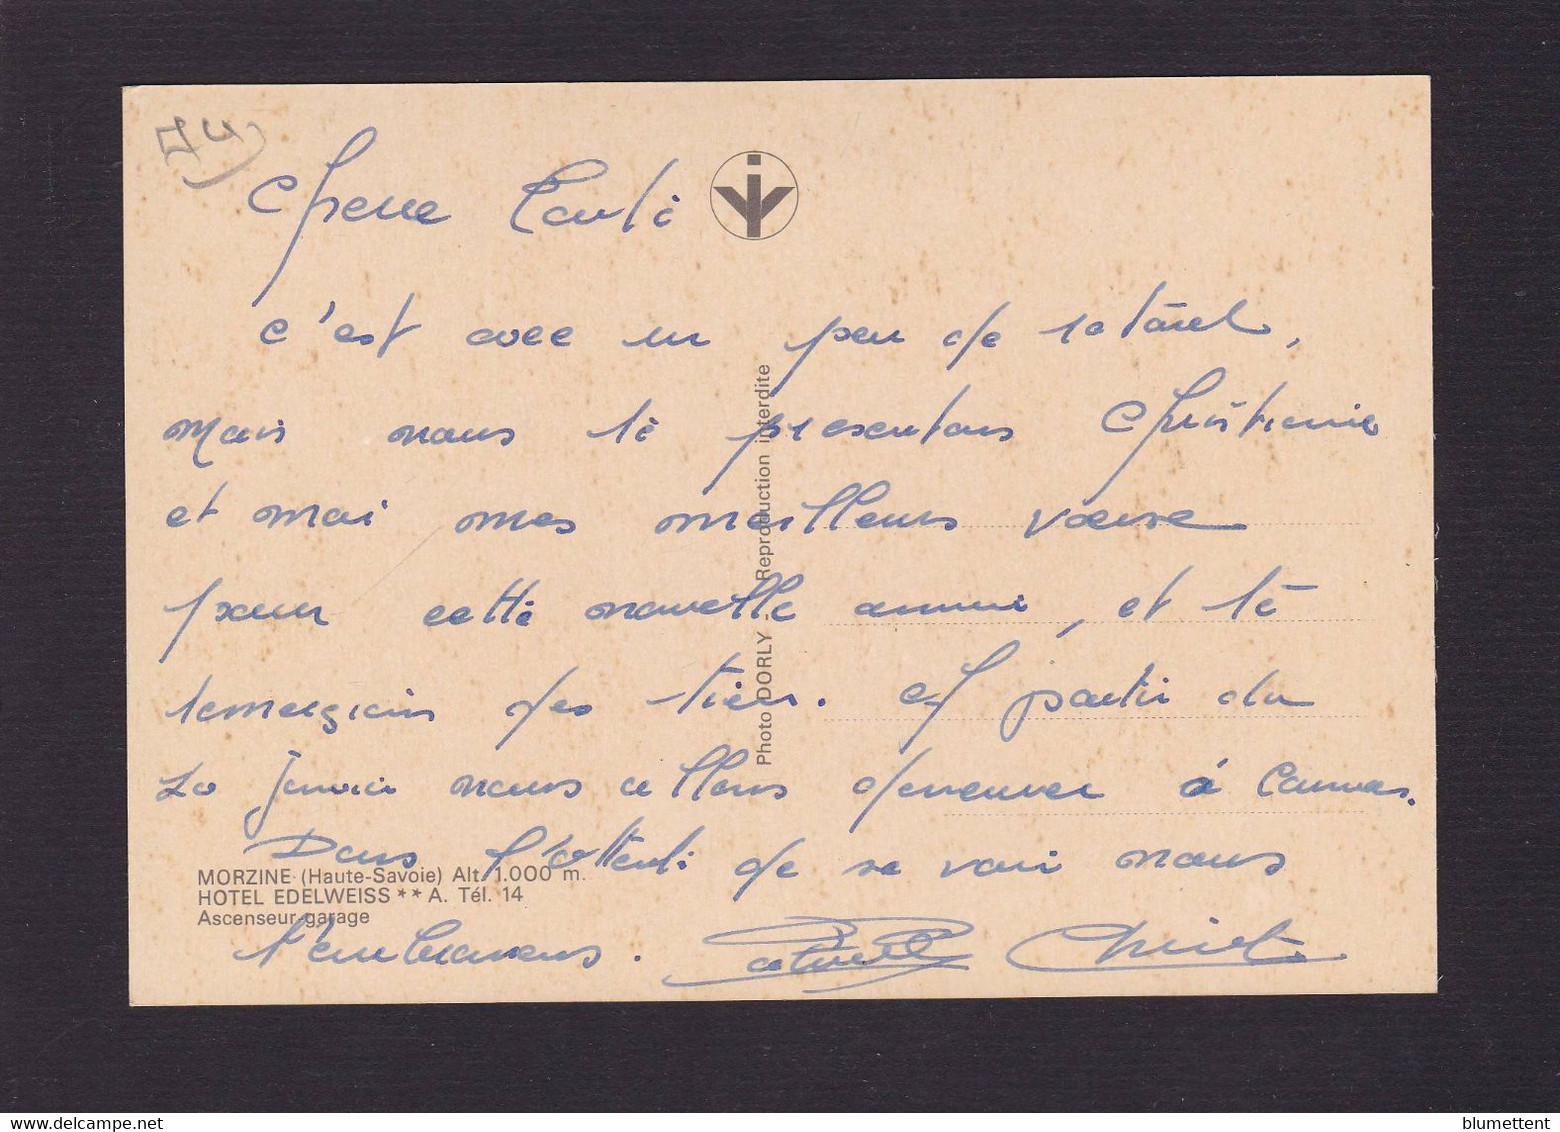 74
Chere
c'est avec un peu de retard,
mais nous te presentons Christiane
et moi mes meilleurs voeux
pour cette nouvelle année, et te
remercions des tiens. A partir du
Janvier nous allons demeurer à Cannes.
Dans l'attente de se voir nous
t'embrassons.
MORZINE (Haute-Savoie) Alt. 1.000 m.
HOTEL EDELWEISS ** A. Tél. 14
Ascenseur-garage
Photo DORLY - Reproduction interdite
blumettent